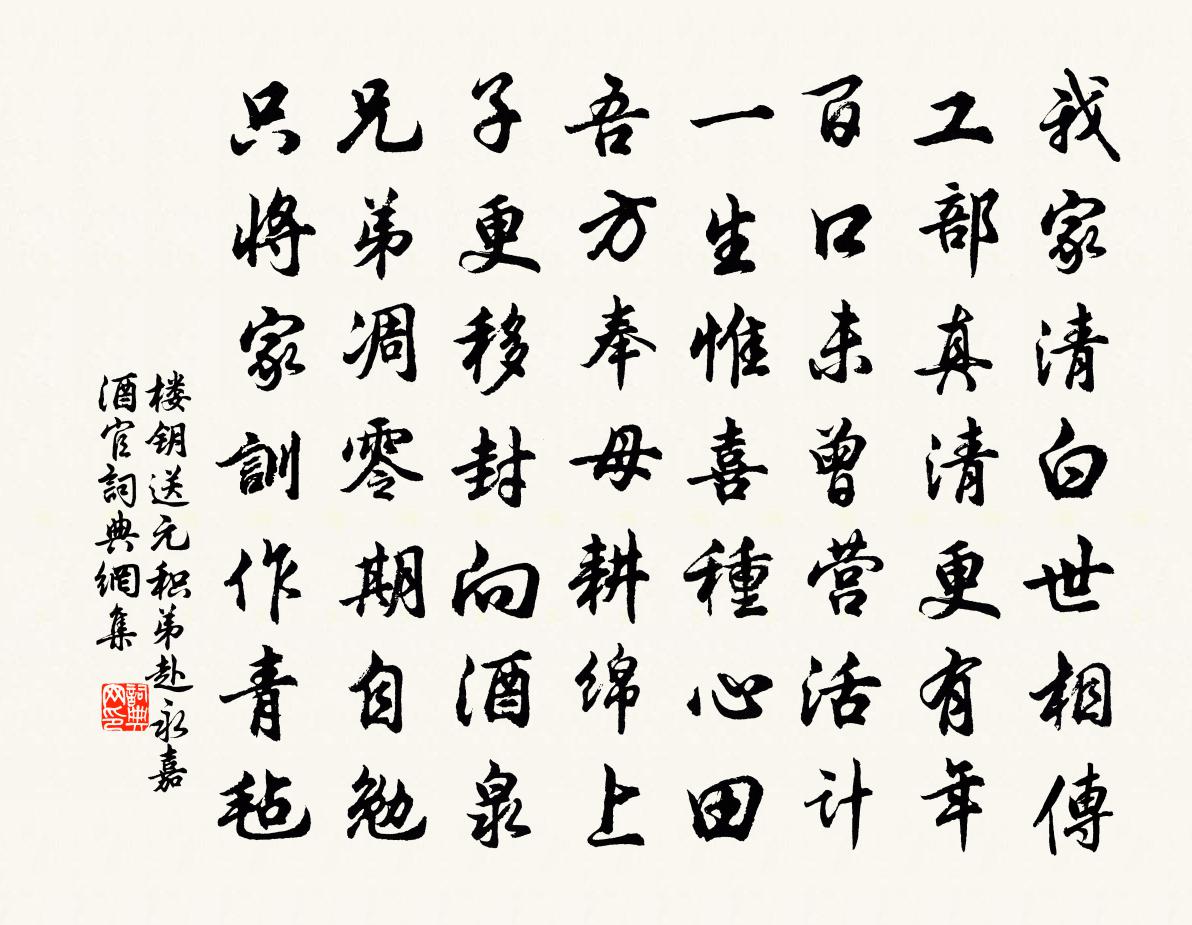 我家清白世相傳
工部真清更有年
百口未曾营活计
一生惟喜種心田
吾方奉母耕绵上
子更移封向酒泉
兄弟凋零期自勉
只将家訓作青毡
楼钥送元积弟赴永嘉
酒官詞典網集
詞典
网印